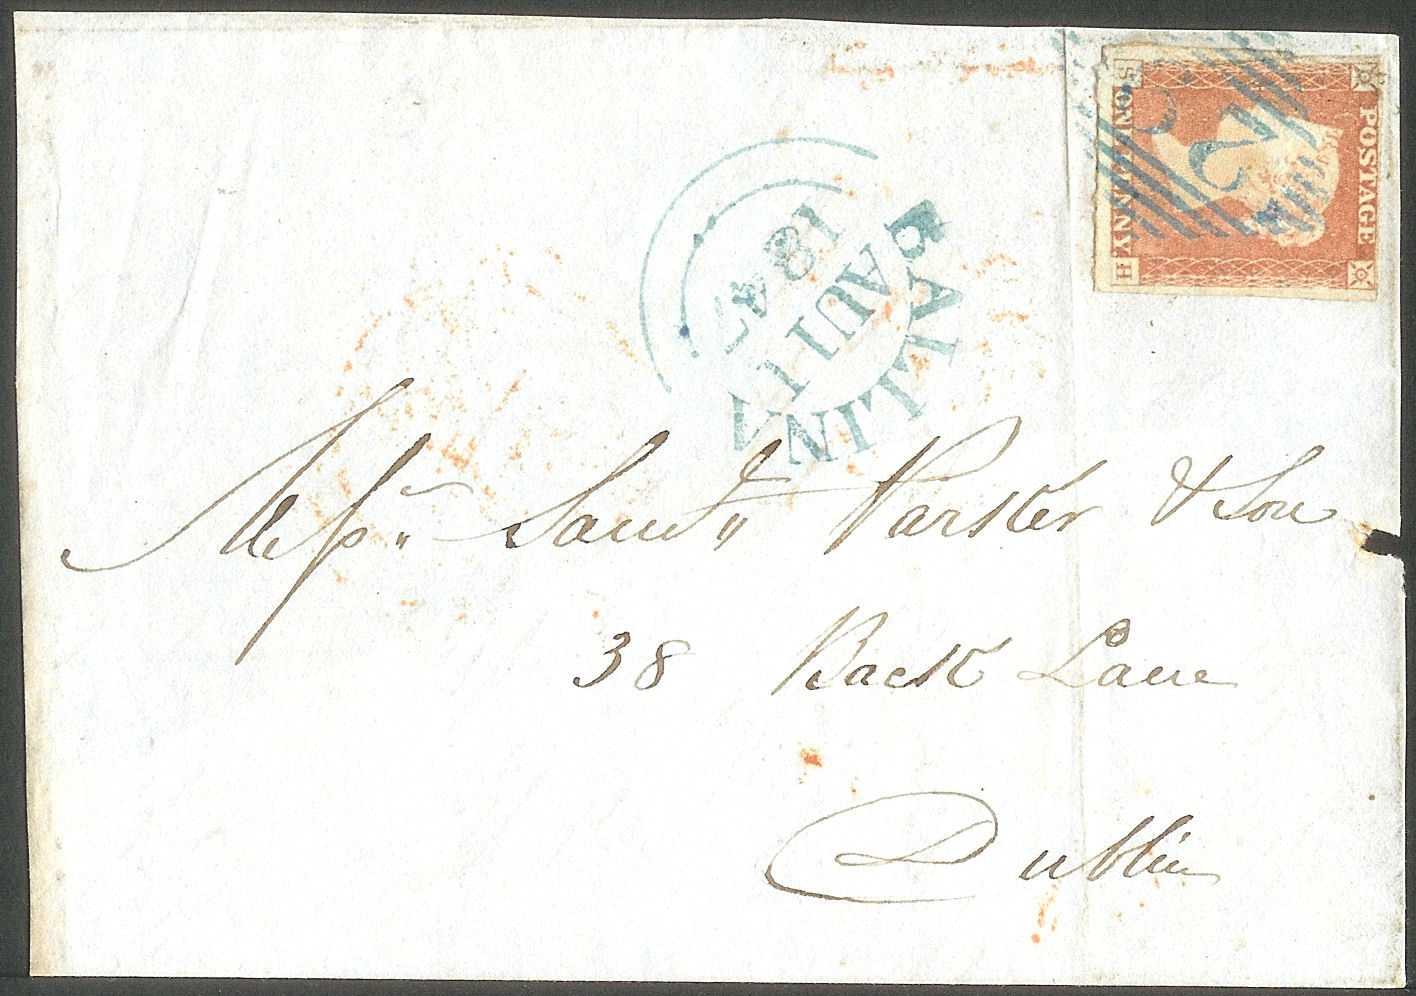 POSTAGE
ONE PENNY
S H
BALLINA
AU 11
1847
Messrs. Saml. Parker & Son
38 Back Lane
Dublin